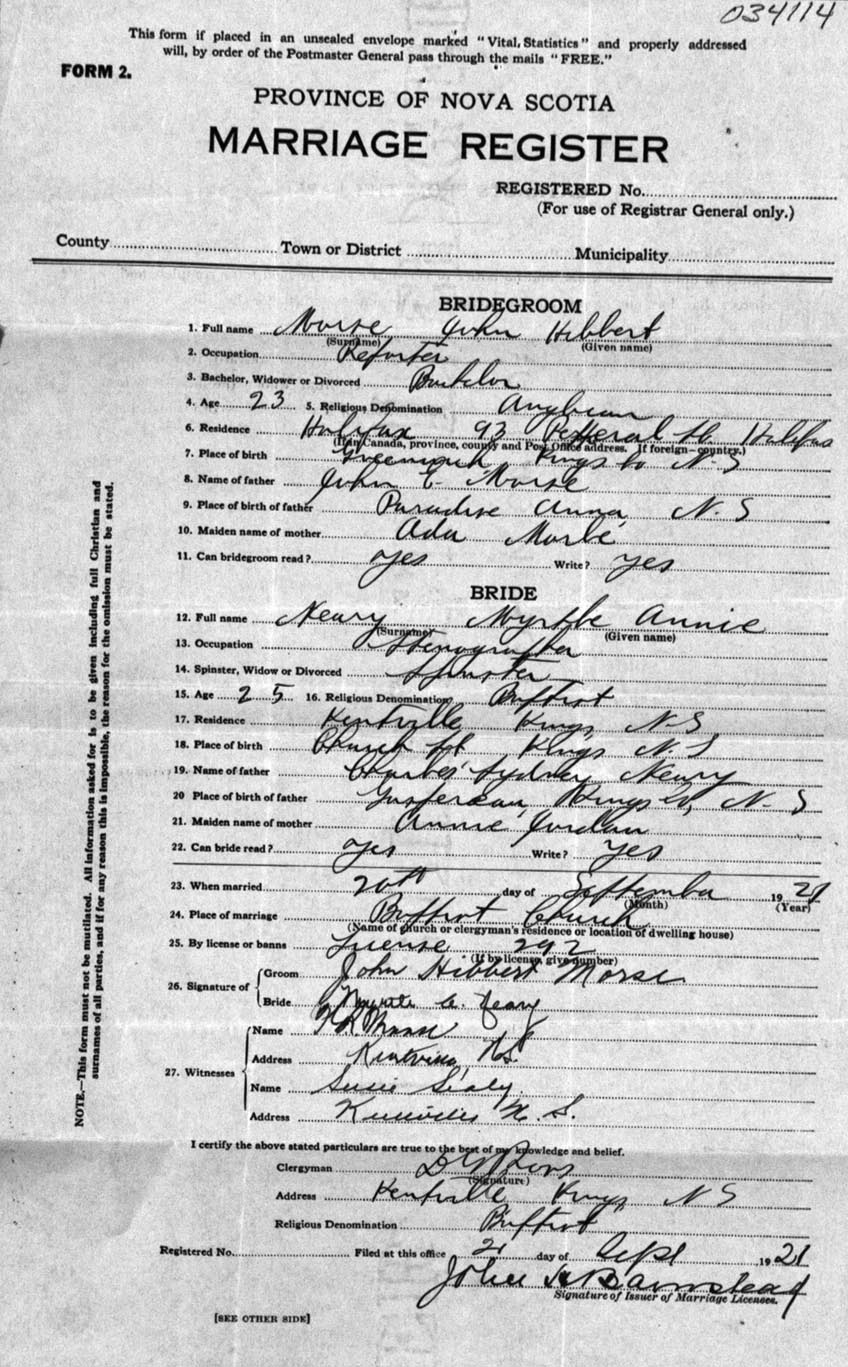 034114
This form if placed in an unsealed envelope marked "Vital, Statistics" and properly addressed
will, by order of the Postmaster General pass through the mails "FREE."
FORM 2.
PROVINCE OF NOVA SCOTIA
MARRIAGE REGISTER
REGISTERED No.
(For use of Registrar General only.)
County Town or District Municipality
BRIDEGROOM
1. Full name Morse John Hibbert
(Surname) (Given name)
2. Occupation Reporter
3. Bachelor, Widower or Divorced Bachelor
4. Age 23 5. Religious Denomination Anglican
6. Residence Halifax 93 St Halifax
(If in Canada, province, county and Post Office address. If foreign—country.)
7. Place of birth Greenwich Kings Co N-S
8. Name of father John E. Morse
9. Place of birth of father Paradise Anna, N.S
10. Maiden name of mother Ada
11. Can bridegroom read? Yes Write? Yes
BRIDE
12. Full name Neary Myrtle Annie
(Surname) (Given name)
13. Occupation Stenographer
14. Spinster, Widow or Divorced Spinster
15. Age 25 16. Religious Denomination Baptist
17. Residence Kentville Kings, N-S
18. Place of birth Church St Kings N.S
19. Name of father Charles Sydney Neary
20 Place of birth of father Kings Co, N-S
21. Maiden name of mother Annie Jordan
22. Can bride read? Yes Write? Yes
23. When married 20th day of September 1921
(Month) (Year)
24. Place of marriage Baptist Church
(Name of church or clergyman's residence or location of dwelling house)
25. By license or banns License 292
(If by license, give number)
26. Signature of Groom John Hibbert Morse
Bride Myrtle A. Neary
27. Witnesses Name
Address Kentville, N.S.
Name Susie Sealy.
Address Kentville N.S.
I certify the above stated particulars are true to the best of my knowledge and belief.
Clergyman
(Signature)
Address Kentville Kings, NS
Religious Denomination Baptist
Registered No. Filed at this office 21 day of Sept 1921
John H Barnstead
Signature of Issuer of Marriage Licenses.
[SEE OTHER SIDE]
NOTE.—This form must not be mutilated. All information asked for is to be given including full Christian and
surnames of all parties, and if for any reason this is impossible, the reason for the omission must be stated.